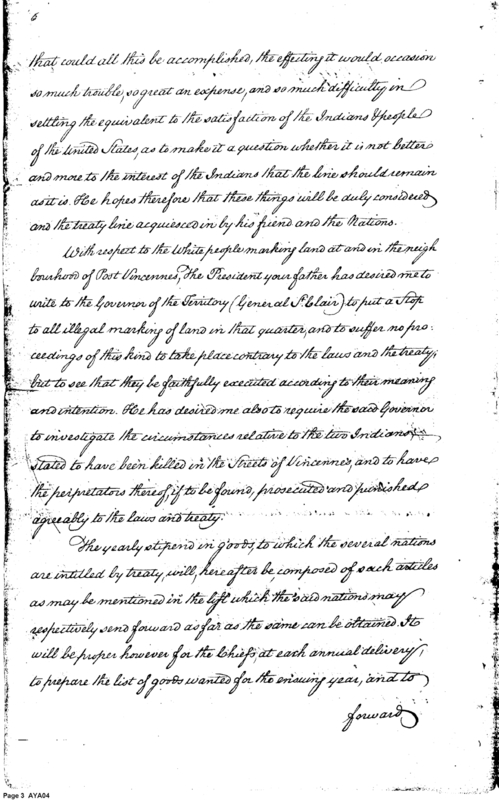 6
that could all this be accomplished, the effecting it would occasion
so much trouble, so great an expense, and so much difficulty in
settling the equivalent to the satisfaction of the Indians & people
of the United States, as to make it a question whether it is not better
and more to the interest of the Indians that the line should remain
as it is. He hopes therefore that these things will be duly considered
and the treaty line acquiesced in by his friend and the Nations.
With respect to the White people marking land at and in the neigh
bourhood of Post Vincennes, The President your father has desired me to
write to the Governor of the Territory (General St. Clair) to put a Stop
to all illegal marking of land in that quarter, and to suffer no pro-
ceedings of this kind to take place contrary to the laws and the treaty;
but to see that they be faithfully executed according to their meaning
and intention. He has desired me also to require the said Governor
to investigate the circumstances relative to the two Indians
stated to have been killed in the Streets of Vincennes, and to have
the perpretators thereof, if to be found, prosecuted and punished
agreeably to the laws and treaty.
The yearly stipend in goods, to which the several nations
are intitled by treaty, will, hereafter be, composed of such articles
as may be mentioned in the list which the said nations may
respectively send forward as far as the same can be obtained. It
will be proper however for the Chiefs, at each annual delivery,
to prepare the list of goods wanted for the ensuing year, and to
forward
Page 3 AYA04